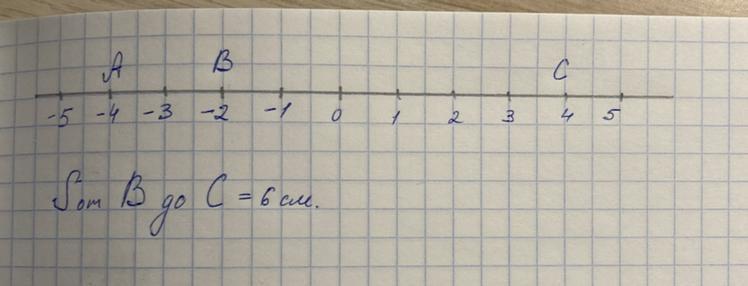 A B C
-5 -4 -3 -2 -1 0 1 2 3 4 5
S от B до C = 6 см.